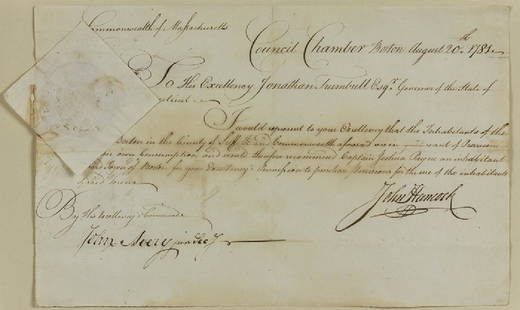 Commonwealth of Massachusetts
Council Chamber Boston August 20th 1781
To His Excellency Jonathan Trumbull Esqr. Governor of the State of
I would represent to your Excellency that the Inhabitants of the
Boston in the County of Suffolk and Commonwealth aforesaid are in want of Provisions
own Consumption and would therefore recommend Captain Joshua Payne an inhabitant
Town of Boston for your Excellency's Permission to purchase Provisions for the use of the inhabitants
said Town
By His Excellency's Command
John Avery jun Secy
John Hancock